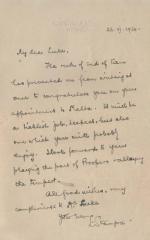 My dear Luke,
The rush of end of term
has prevented me from writing at
once to congratulate you on your
appointment to Malta. It will be
a ticklish job, I expect, but also
one which you will probably
enjoy. I look forward to your
playing the part of Prospero
the Tempest.
All good wishes,
compliments to Mrs Luke